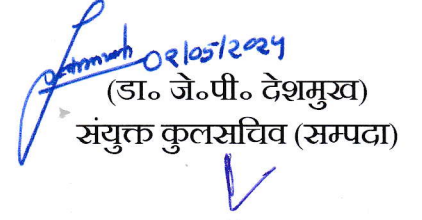 02/05/2024
(डा० जे०पी० देशमुख)
संयुक्त कुलसचिव (सम्पदा)